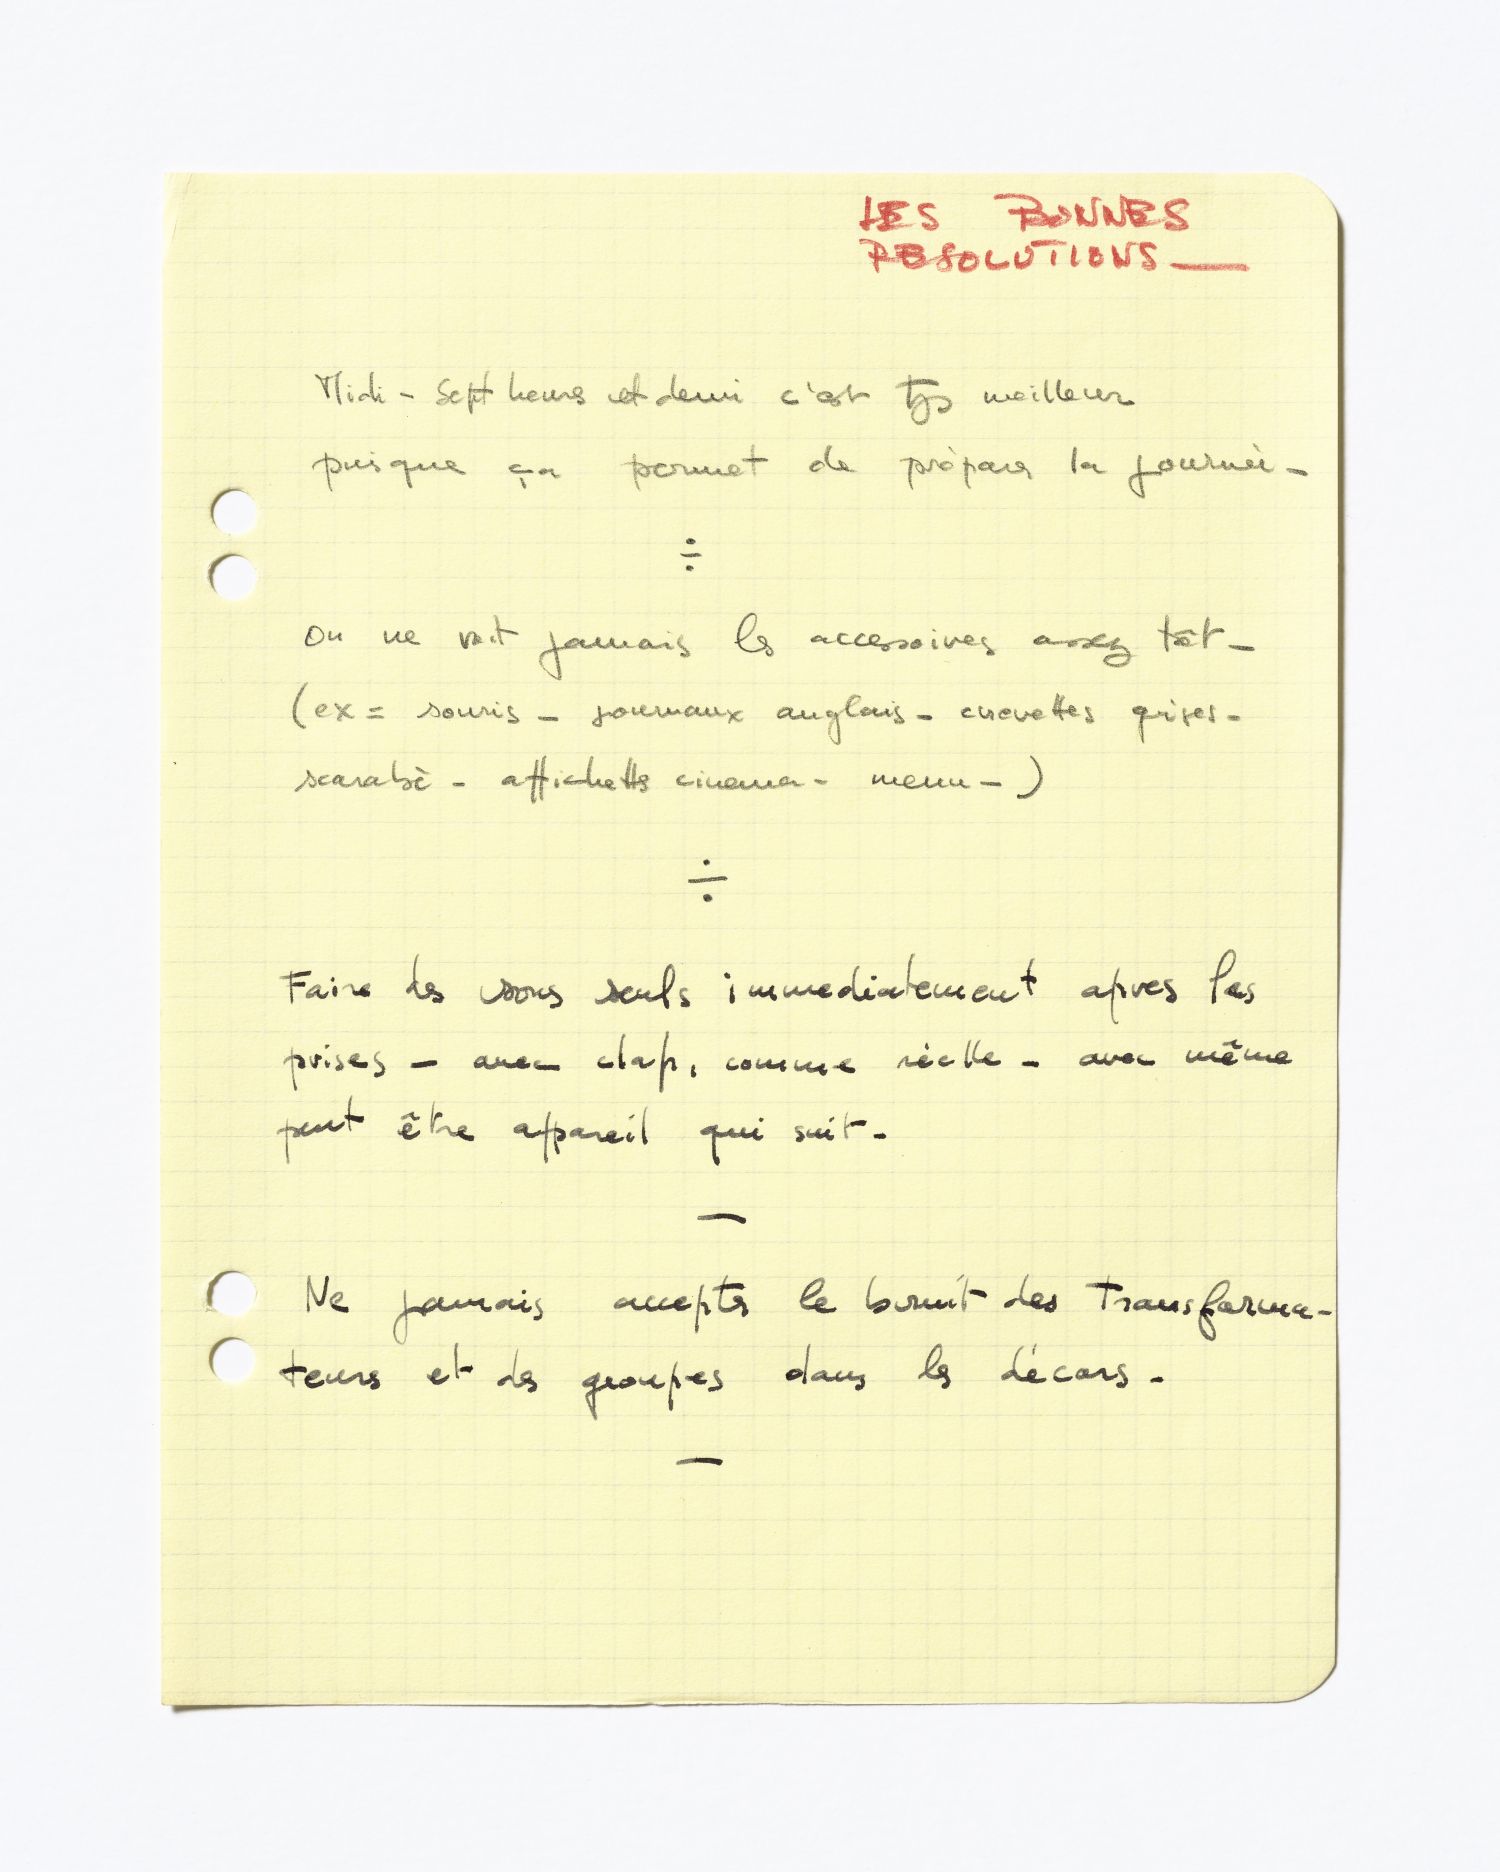 LES BONNES
RESOLUTIONS —
Midi - Sept heures et demi c'est tjs meilleur
puisque ça permet de préparer la journée -
÷
On ne voit jamais les accessoires assez tôt -
(ex = souris - journaux anglais - crevettes grises -
scarabé - affichettes cinema - menu - )
÷
Faire des sons seuls immediatement apres les
prises - avec clap, comme réelle - avec même
peut être appareil qui suit -
—
Ne jamais accepter le bruit des transforma-
teurs et des groupes dans les décors -
—